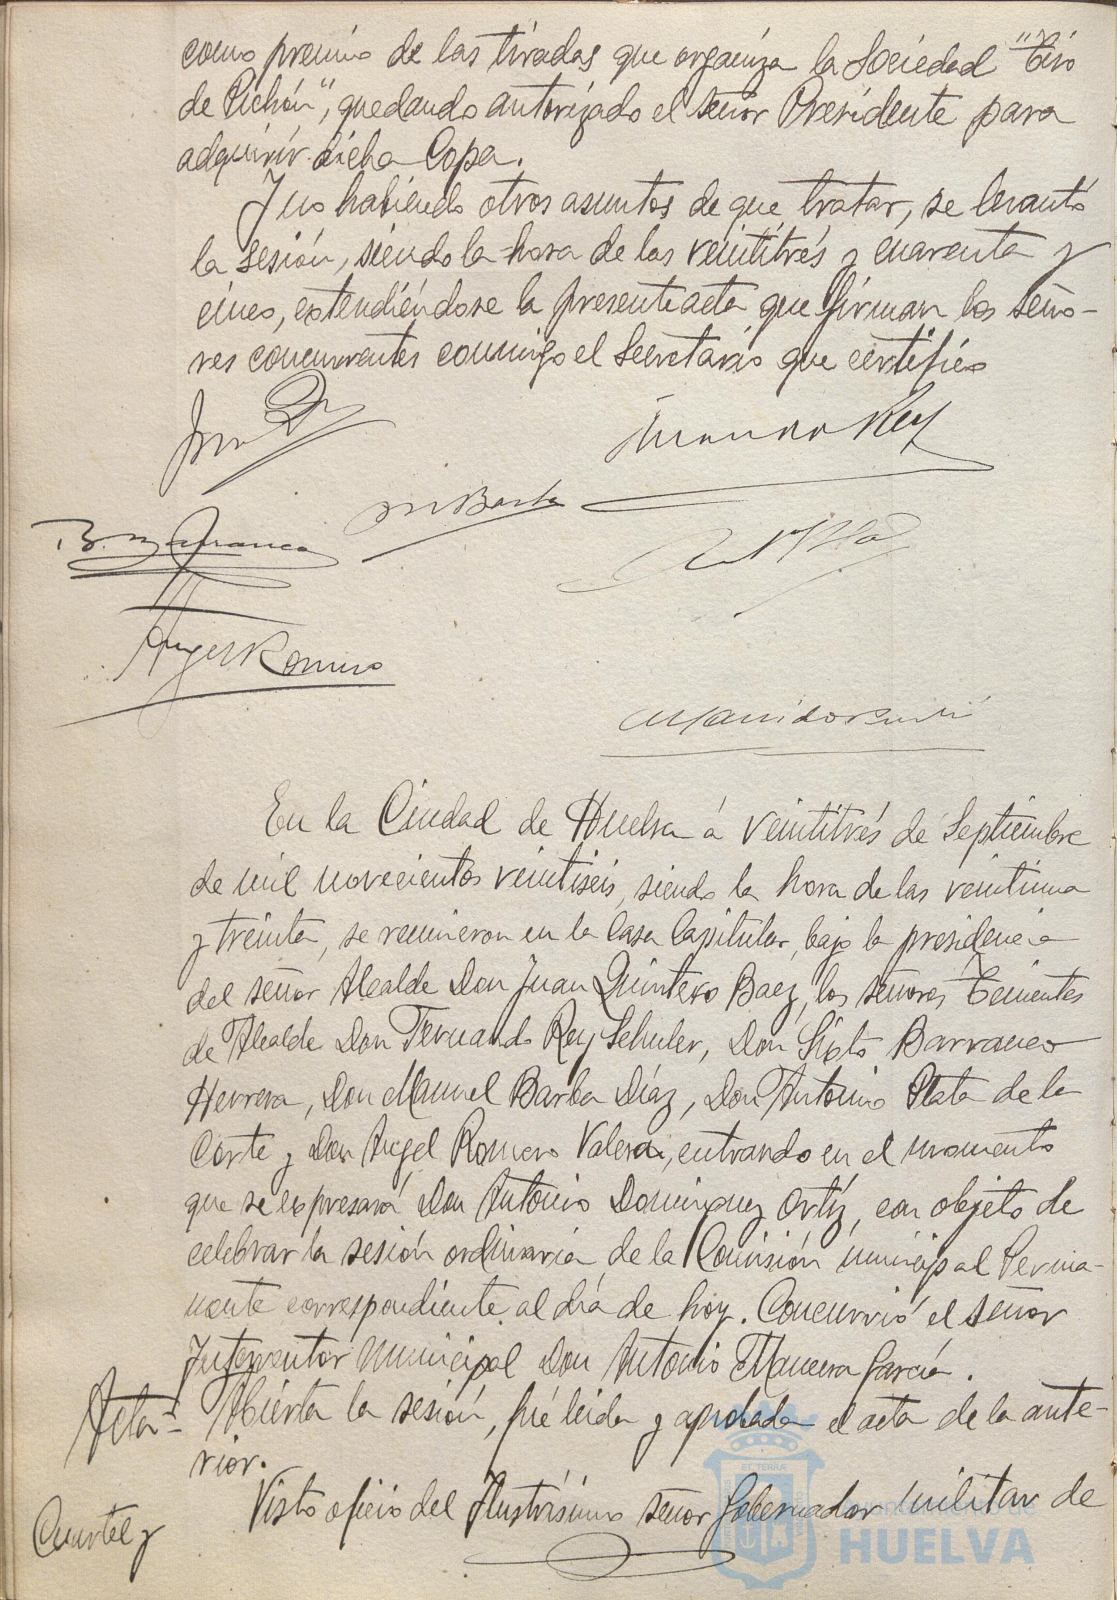 como premio de las tiradas que organiza la Sociedad "Tiro
de Pichón", quedando autorizado el señor Presidente para
adquirir dicha Copa.
Y no habiendo otros asuntos de que tratar, se levantó
la sesión, siendo la hora de las veintitrés y cuarenta y
cinco, extendiéndose la presente acta que firman los seño-
res concurrentes conmigo el Secretario que certifico
Rey
M Barba
Angel Romero
En la Ciudad de Huelva á veintitrés de Septiembre
de mil novecientos veintiseis, siendo la hora de las veintiuna
y treinta, se reunieron en la Casa Capitular, bajo la presidencia
del señor Alcalde Don Juan Quintero Baez, los señores Tenientes
de Alcalde Don Fernando Rey Schuler, Don Sixto Barranco
Herrera, Don Manuel Barba Díaz, Don Antonio Plata de la
Corte y Don Angel Romero Valera, entrando en el momento
que se expresará Don Antonio Dominguez Ortíz, con objeto de
celebrar la sesión ordinaria de la Comisión municipal Perma-
nente correspondiente al día de hoy. Concurrió el señor
Interventor Municipal Don Antonio Mancera García.
Acta= Abierta la sesión, fué leida y aprobada el acta de la ante-
rior.
Cuartel y Visto oficio del Ilustrísimo señor Gobernador militar de
Ayuntamiento de
HUELVA